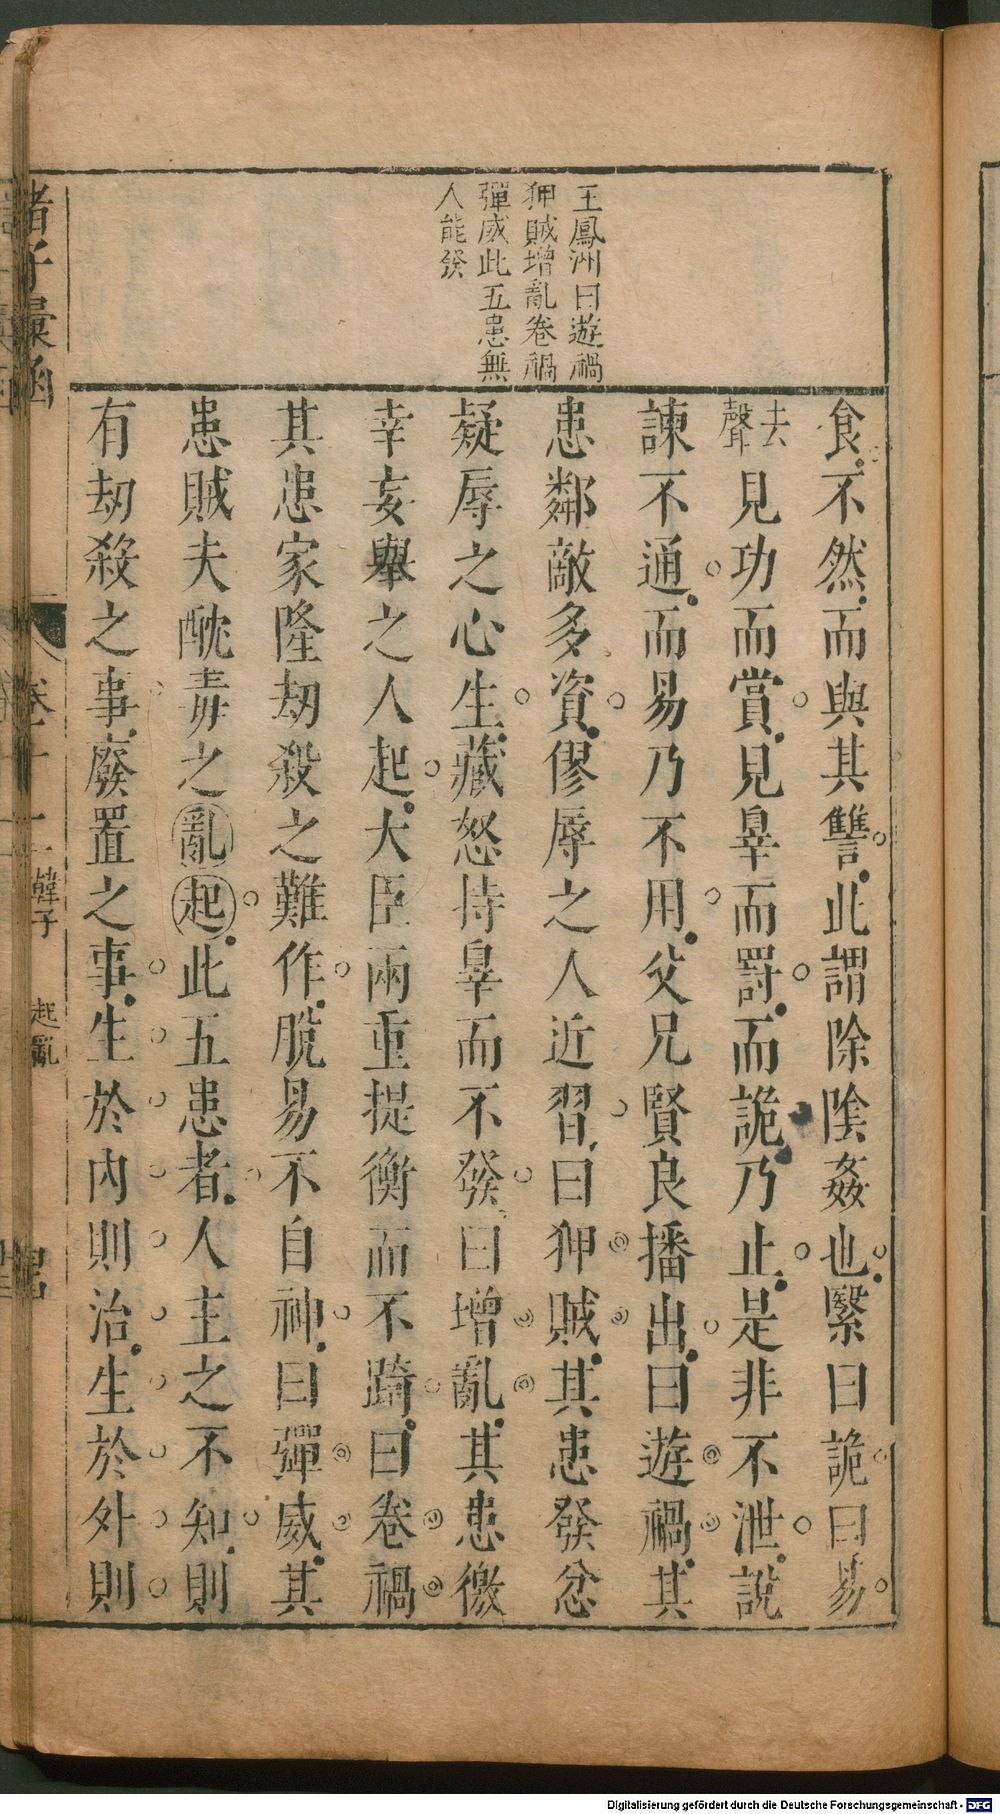 王鳳洲曰遊禍
狎賊增亂卷禍
彈威此五患無
人能發
食不然而與其讐此謂除陰姦也緊曰詭曰易
去聲見功而賞見辠而罰而詭乃止是非不泄說
諫不通而易乃不用父兄賢良播出曰遊禍其
患鄰敵多資僇辱之人近習曰狎賊其患發忿
疑辱之心生藏怒持辠而不發曰增亂其患徼
幸妄舉之人起大臣兩重提衡而不踦曰卷禍
其患家隆劫殺之難作脫易不自神曰彈威其
患賊夫酖毒之亂起此五患者人主之不知則
有劫殺之事廢置之事生於內則治生於外則
諸子彙函
卷十二
韓子
起亂
Digitalisierung gefördert durch die Deutsche Forschungsgemeinschaft - DFG